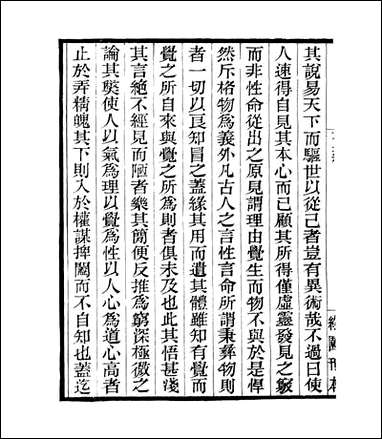 其說易天下而驅世以從己者豈有異術哉不過曰使
人速得自見其本心而已顧其所得僅虛靈發見之竅
而非性命從出之原見謂理由覺生而物不與於是悍
然斥格物為義外凡古人之言性言命所謂秉彝物則
者一切以良知冒之蓋緣其用而遺其體雖知有覺而
覺之所自來與覺之所為則者俱未及也此其悟甚淺
其言絕不經見而陋者樂其簡便反推為窮深極微之
論其獘使人以氣為理以覺為性以人心為道心高者
止於弄精魄其下則入於權謀捭闔而不自知也蓋迄